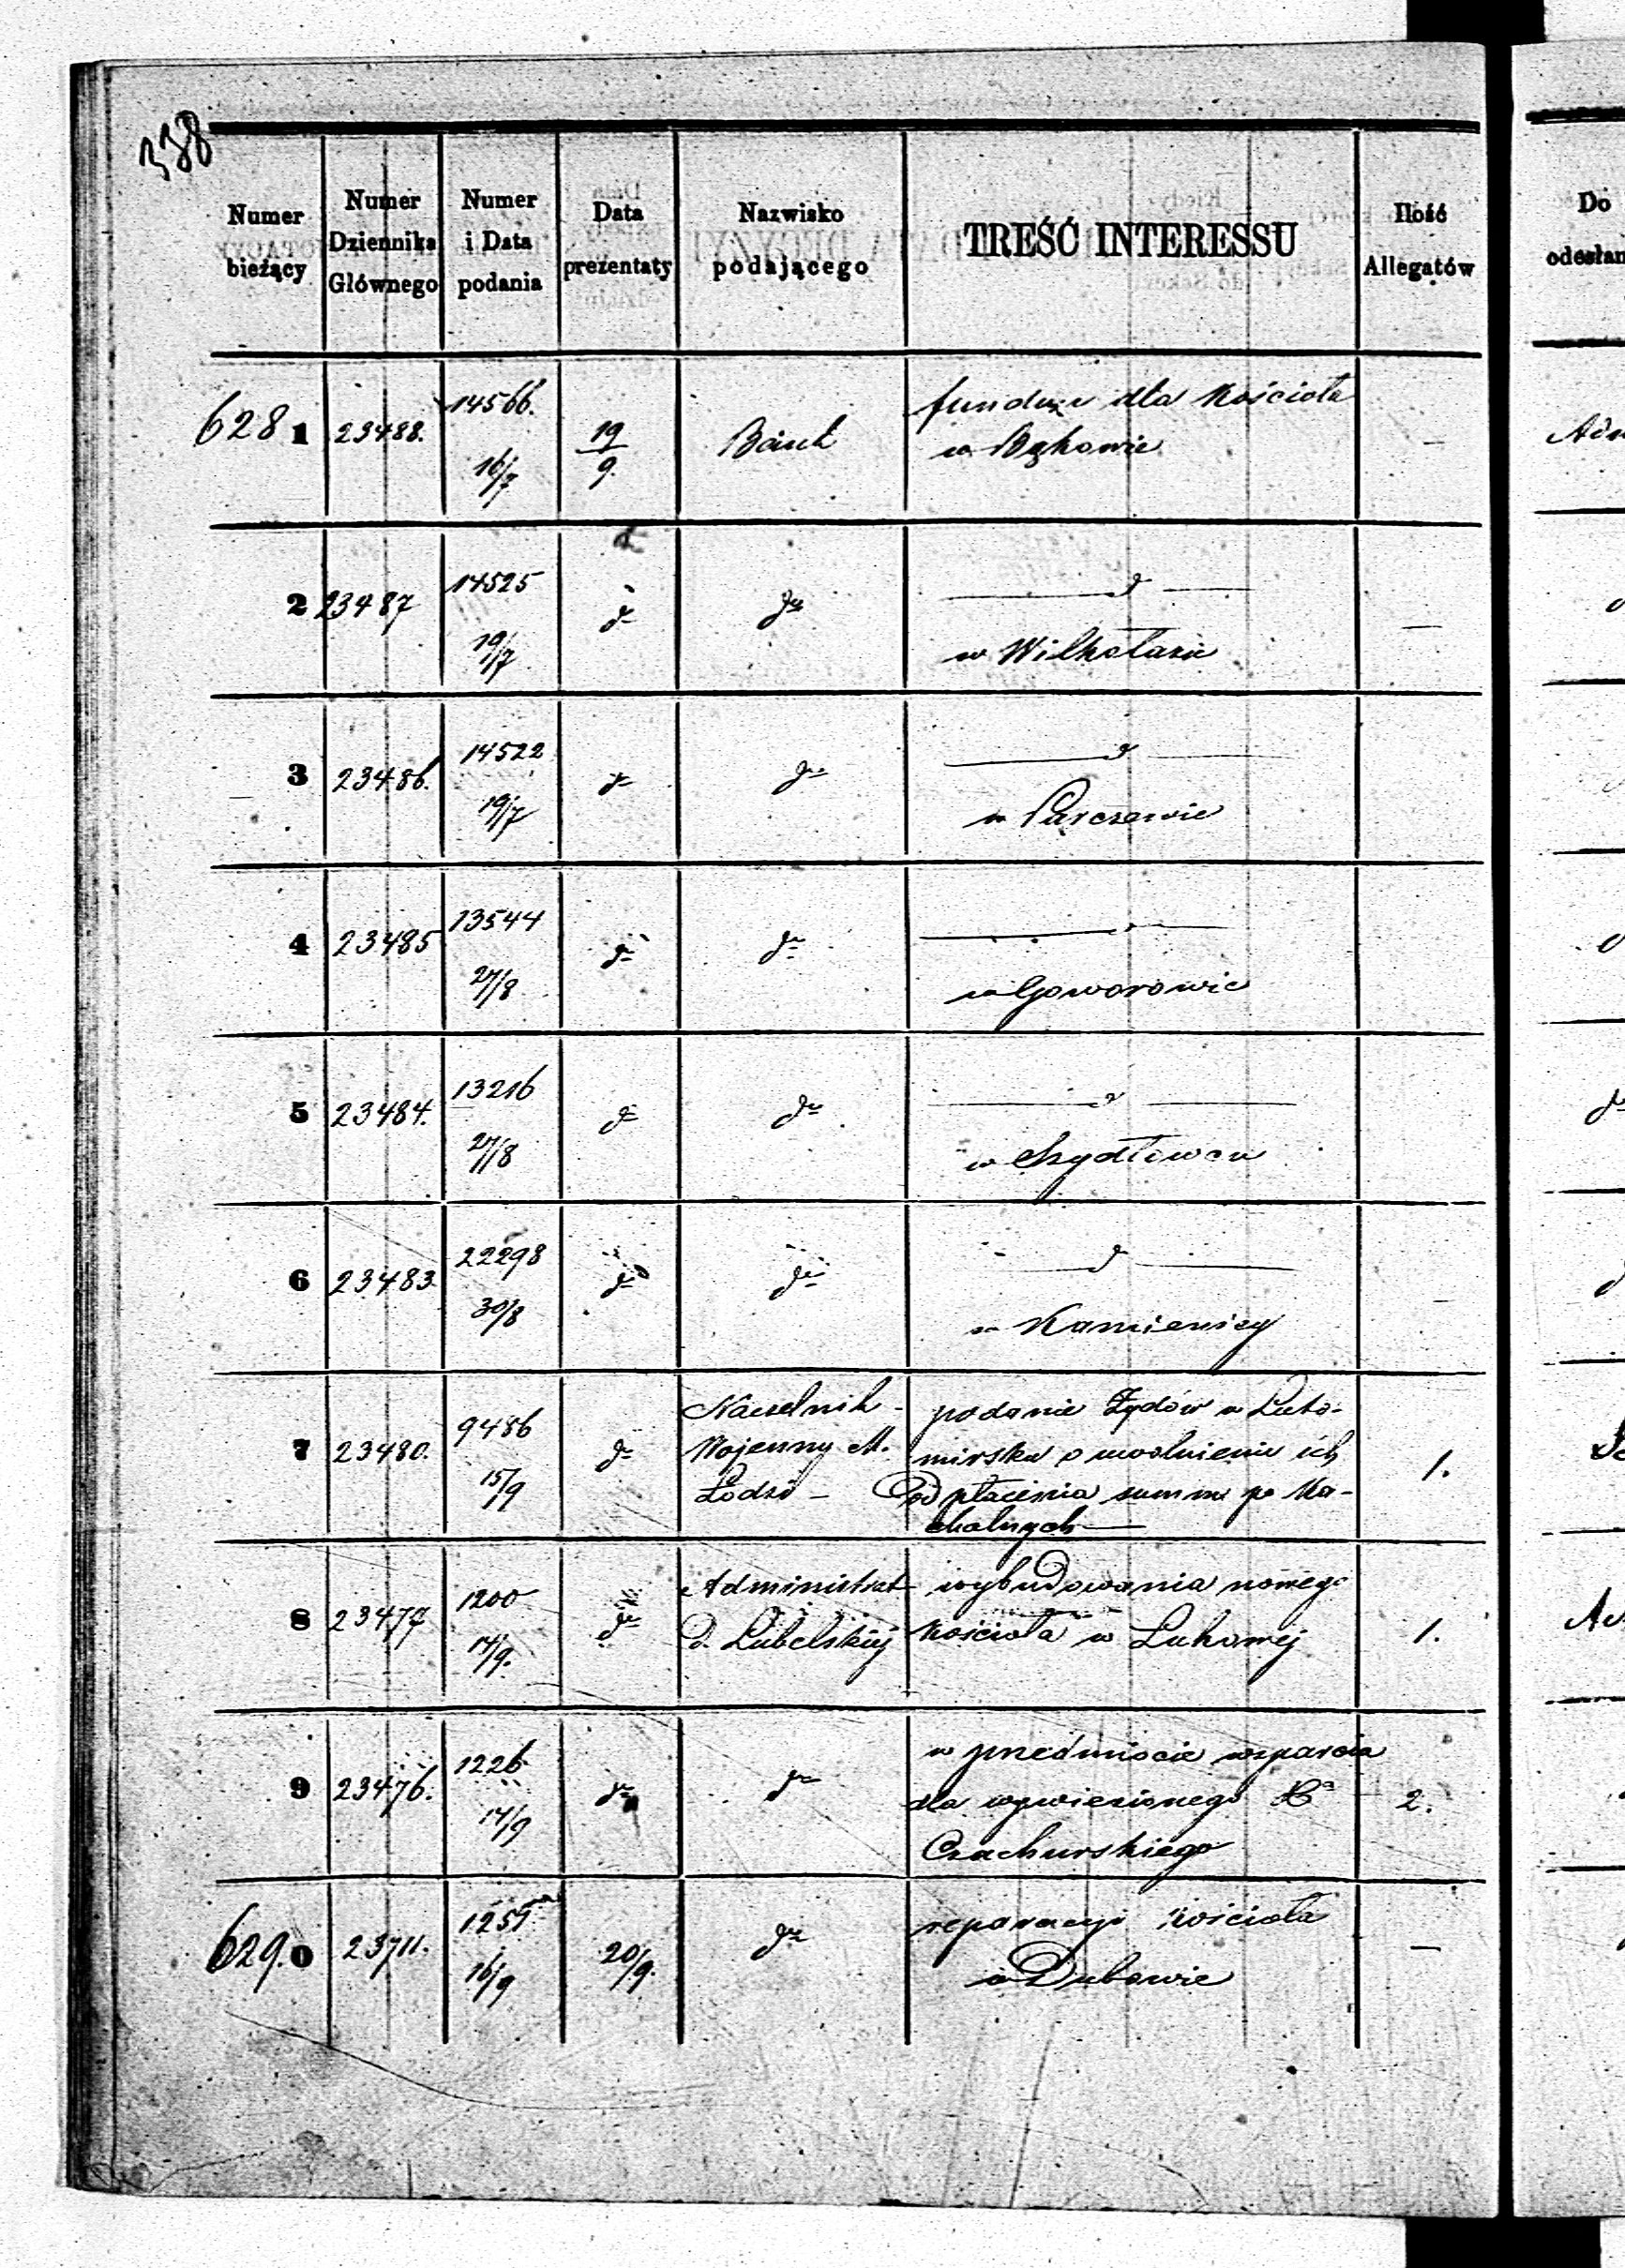 338
Numer bieżący
Numer Dziennika Głównego
Numer i Data podania
Data prezentaty
Nazwisko podającego
TREŚĆ INTERESSU
Ilość Allegatów
Do
odesłan
6281 23488. 14566. 16/7 19/9. Bank
funduszu dla Kościoła
w Bąkowie
—
2 23487 14525 19/7 do do
— d —
w Wilkołazie
—
3 23486. 14522 19/7 do do
— d —
w Parczewie
4 23485 13544 27/8 do do
w Goworowie
5 23484. 13216 27/8 do do
— d —
w Szydłowcu
6 23483. 22298 30/8 do do
— d —
w Kamienicy
—
7 23480. 9486 15/9 do
Naczelnik
Wojenny M.
Łodzi —
podanie Żydów w Luto-
mirsku o uwolnienie ich
od płacenia summ po Ka-
chalnych —
1.
8 23477 1200 17/9. do
Administrat
D. Lubelskiej
wybudowania nowego
Kościoła w Lukowej
1.
9 23476. 1226 17/9 do do
w przedmiocie wsparcia
dla wywiezionego Xa
Czachurskiego
2.
629.0 23711. 1251 16/9 20/9. do
reparacyi Kościoła
w Dubowie
—